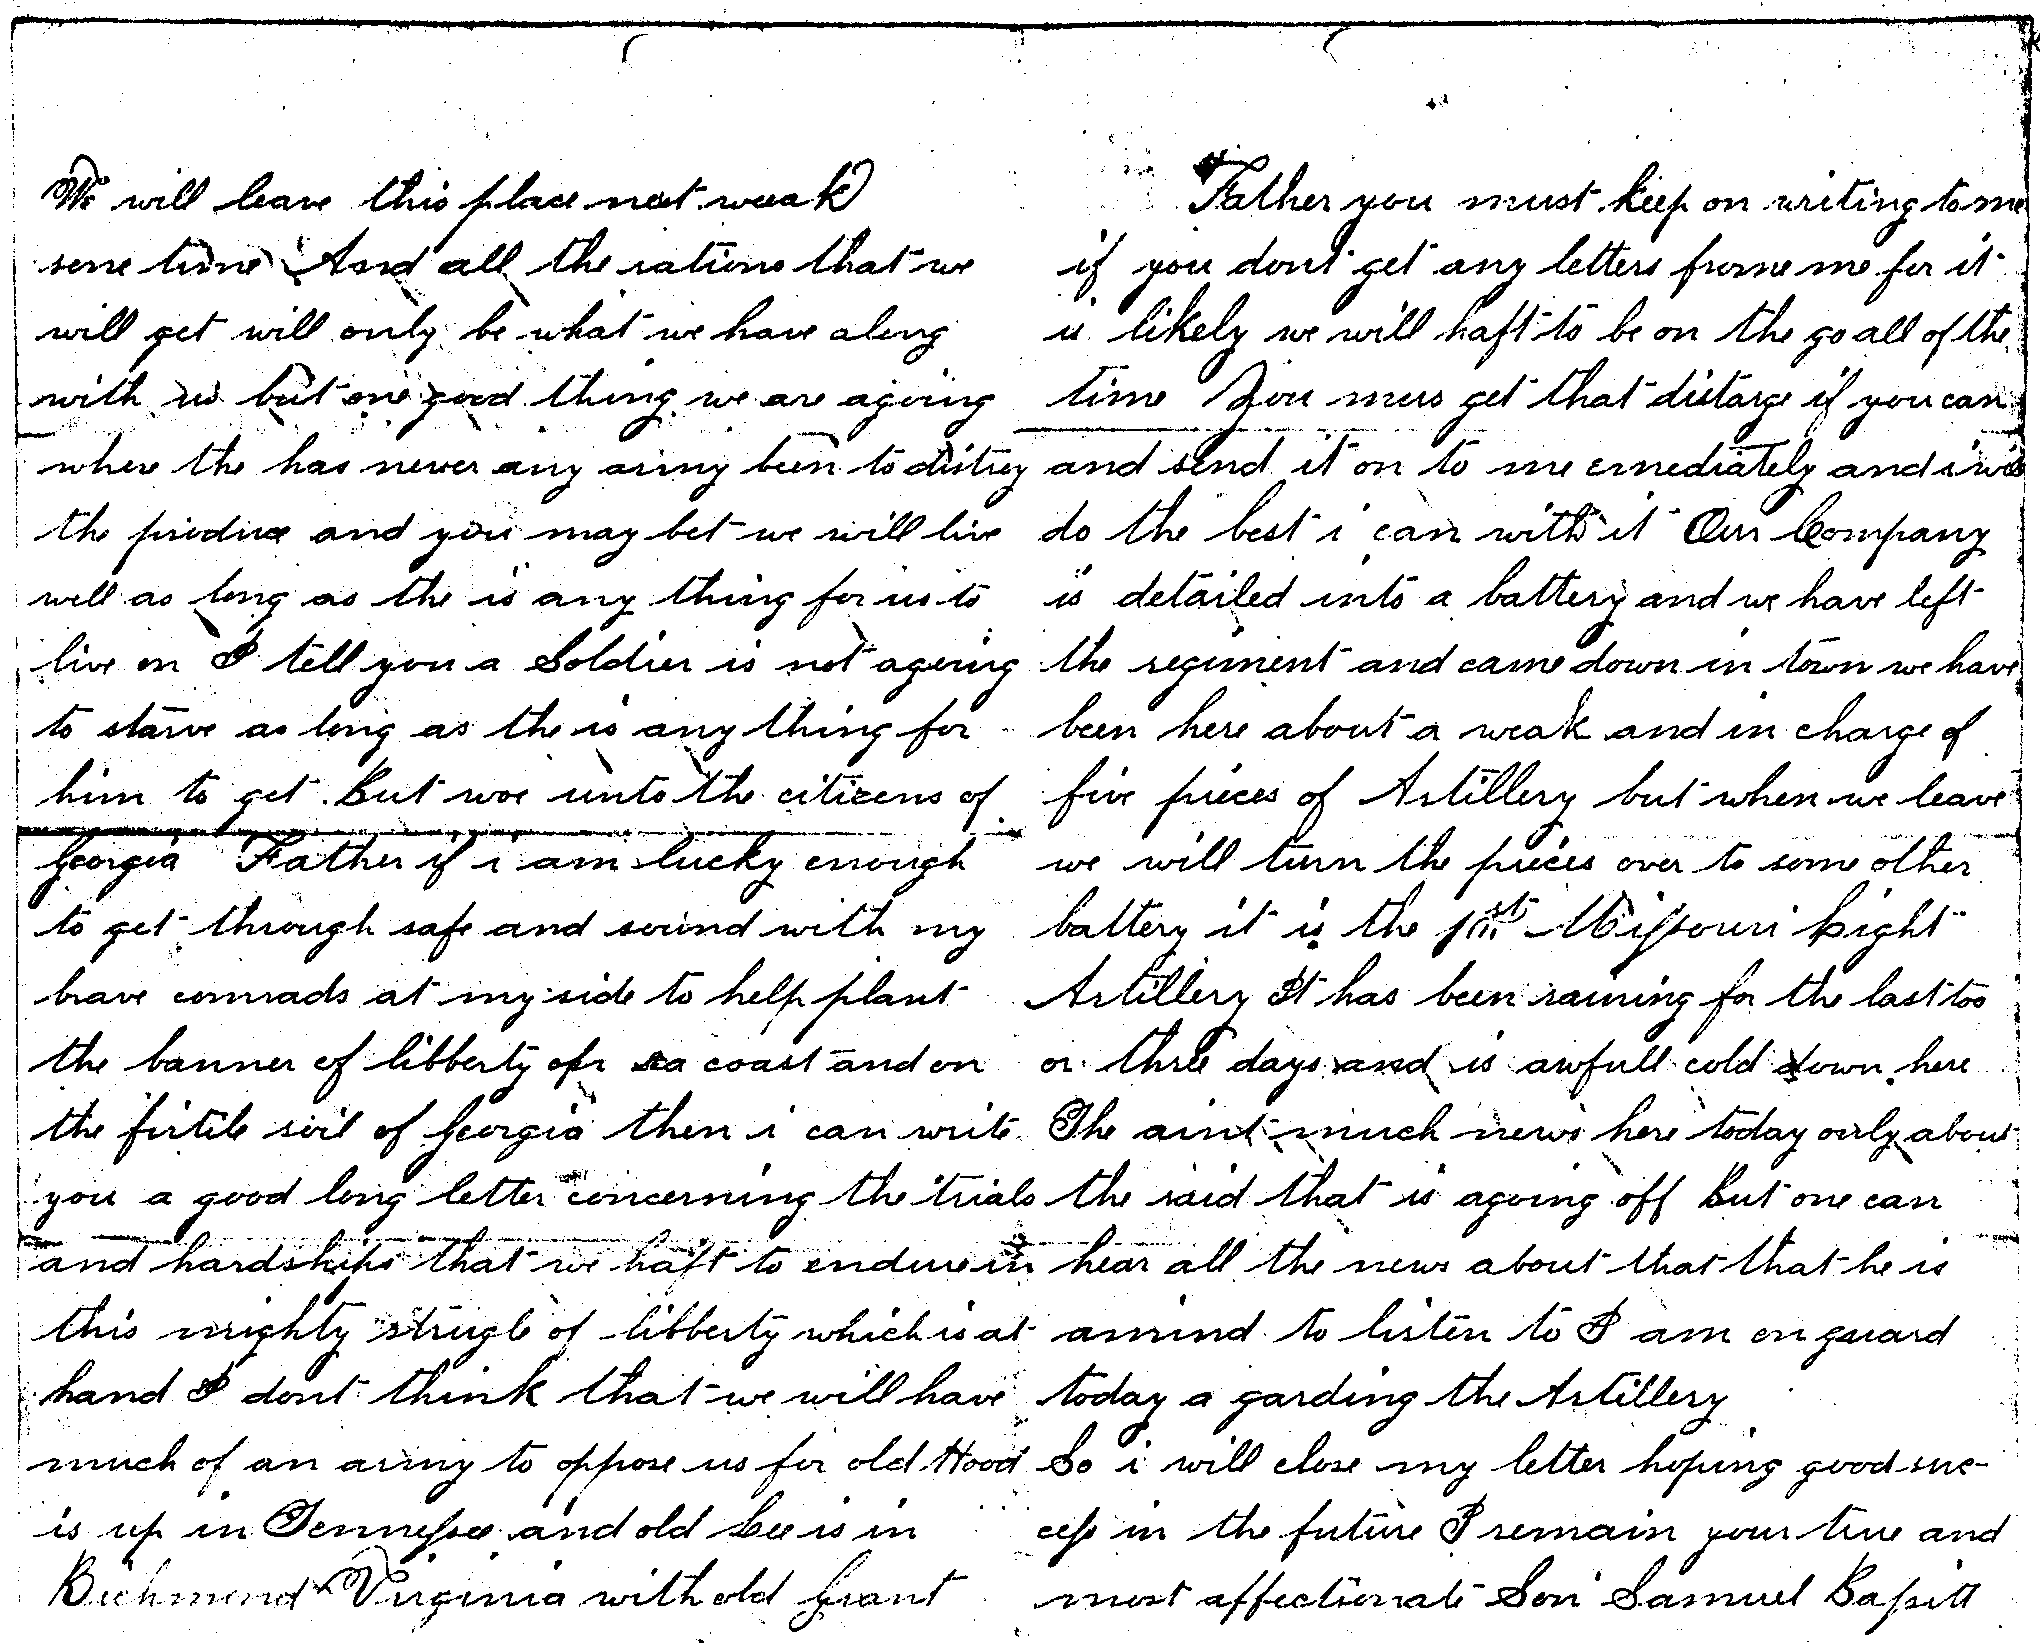 We will leave this place next weak
some time And all the rations that we
will get will only be what we have along
with us but one good thing we are agoing
where the has never any army been to distroy
the produce and you may bet we will live
well as long as the is any thing for us to
live on I tell you a Soldier is not agoing
to starve as long as the is any thing for
him to get. But woe unto the citizens of
Georgia Father if i am lucky enough
to get through safe and sound with my
brave comrads at my side to help plant
the banner of libberty opr sea coast and on
the firtile soil of Georgia then i can write
you a good long letter concerning the trials
and hardships that we haft to endure in
this mighty strugle of libberty which is at
hand I dont think that we will have
much of an army to oppose us for old Hood
is up in Tennessee and old Lee is in
Richmond Virginia with old Grant
Father you must keep on writing to me
if you dont get any letters frome me for it
is likely we will haft to be on the go all of the
time You mus get that distarge if you can
and send it on to me emediately and i will
do the best i can with it Our Company
is detailed into a battery and we have left
the regiment and came down in town we have
been here about a weak and in charge of
five pieces of Artillery but when we leave
we will turn the pieces over to some other
battery it is the 1st Missouri Light
Artillery It has been raining for the last too
or three days and is awfull cold down here
The aint much news here today only about
the raid that is agoing off But one can
hear all the news about that that he is
amind to listen to I am on guard
today a garding the Artillery
So i will close my letter hoping good suc-
cess in the future I remain your true and
most affectionate Son Samuel